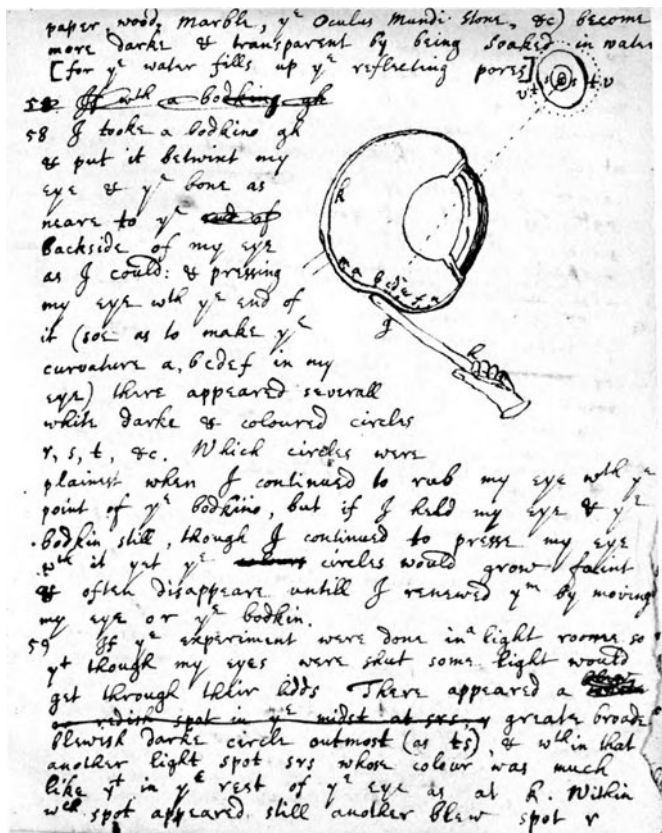 paper, wood, marble, yᵉ Oculus Mundi Stone, &c) become
more darke & transparent by being soaked in water
[for yᵉ water fills up yᵉ reflecting pores]
58 If wth a bodking gh
58 I tooke a bodkine gh
& put it betwixt my
eye & yᵉ bone as
neare to yᵉ end of
backside of my eye
as I could: & pressing
my eye wth yᵉ end of
it (soe as to make yᵉ
curvature a, bcdef in my
eye) there appeared severall
white darke & coloured circles
r, s, t, &c. Which circles were
plainest when I continued to rub my eye wth yᵉ
point of yᵉ bodkine, but if I held my eye & yᵉ
bodkin still, though I continued to presse my eye
wth it yet yᵉ circles would grow faint
& often disappeare untill I renewed yᵐ by moving
my eye or yᵉ bodkin.
59 If yᵉ experiment were done in a light roome so
yt though my eyes were shut some light would
get through their lidds There appeared a
redish spot in yᵉ midst at srs, greate broade
blewish darke circle outmost (as ts), & wthin that
another light spot srs whose colour was much
like yt in yᵉ rest of yᵉ eye as at k. Within
wch spot appeared still another blew spot r